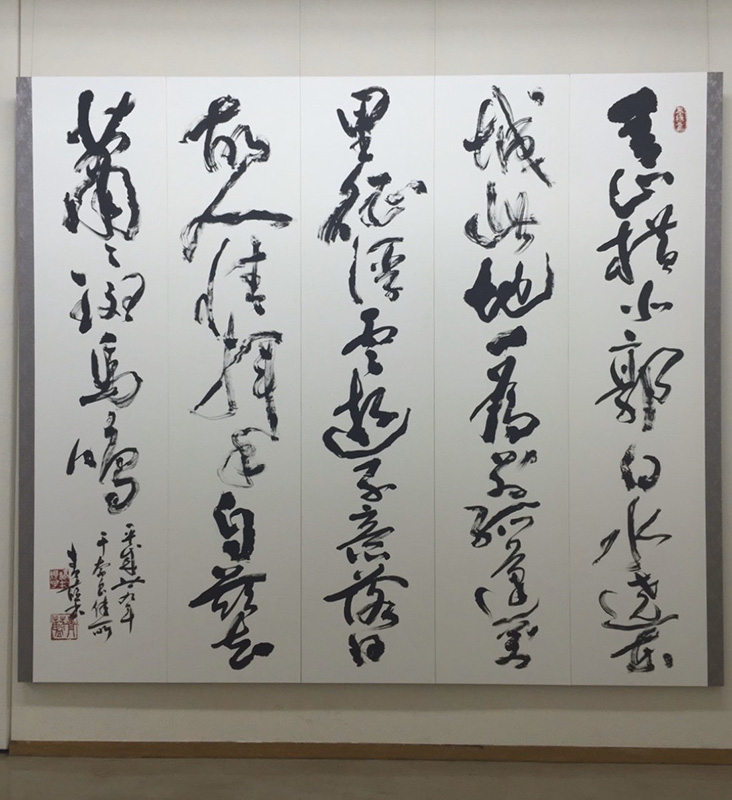 青山横北郭白水遶東
城此地一為別孤蓬萬
里征浮雲遊子意落日
故人情揮手自茲去
蕭々班馬鳴
平成廿九年
于奈良